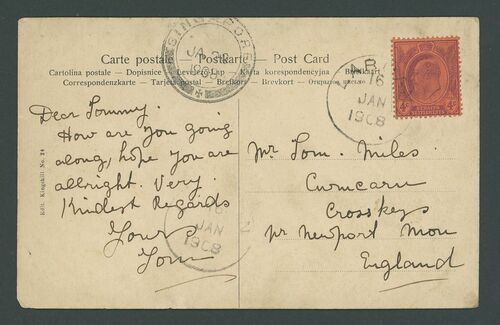 Carte postale — Postkarte — Post Card
Cartolina postale — Dopisnice — Levelező-Lap — Karta korespondencyjna — Brevkort
Correspondenzkarte — Tarjeta postal — Brefkort — Brevkort —
SINGAPORE
JA 22
LAB
16
JAN
1908
4c
4c
Dear Tommy.
How are you going
along, hope you are
allright. Very.
Kindest Regards
Yours
Tom
JAN
1908
2
Mr Tom. Miles.
Cwmcarn
Crosskeys
nr Newport Mon
England
Edit. Kingshill No. 24